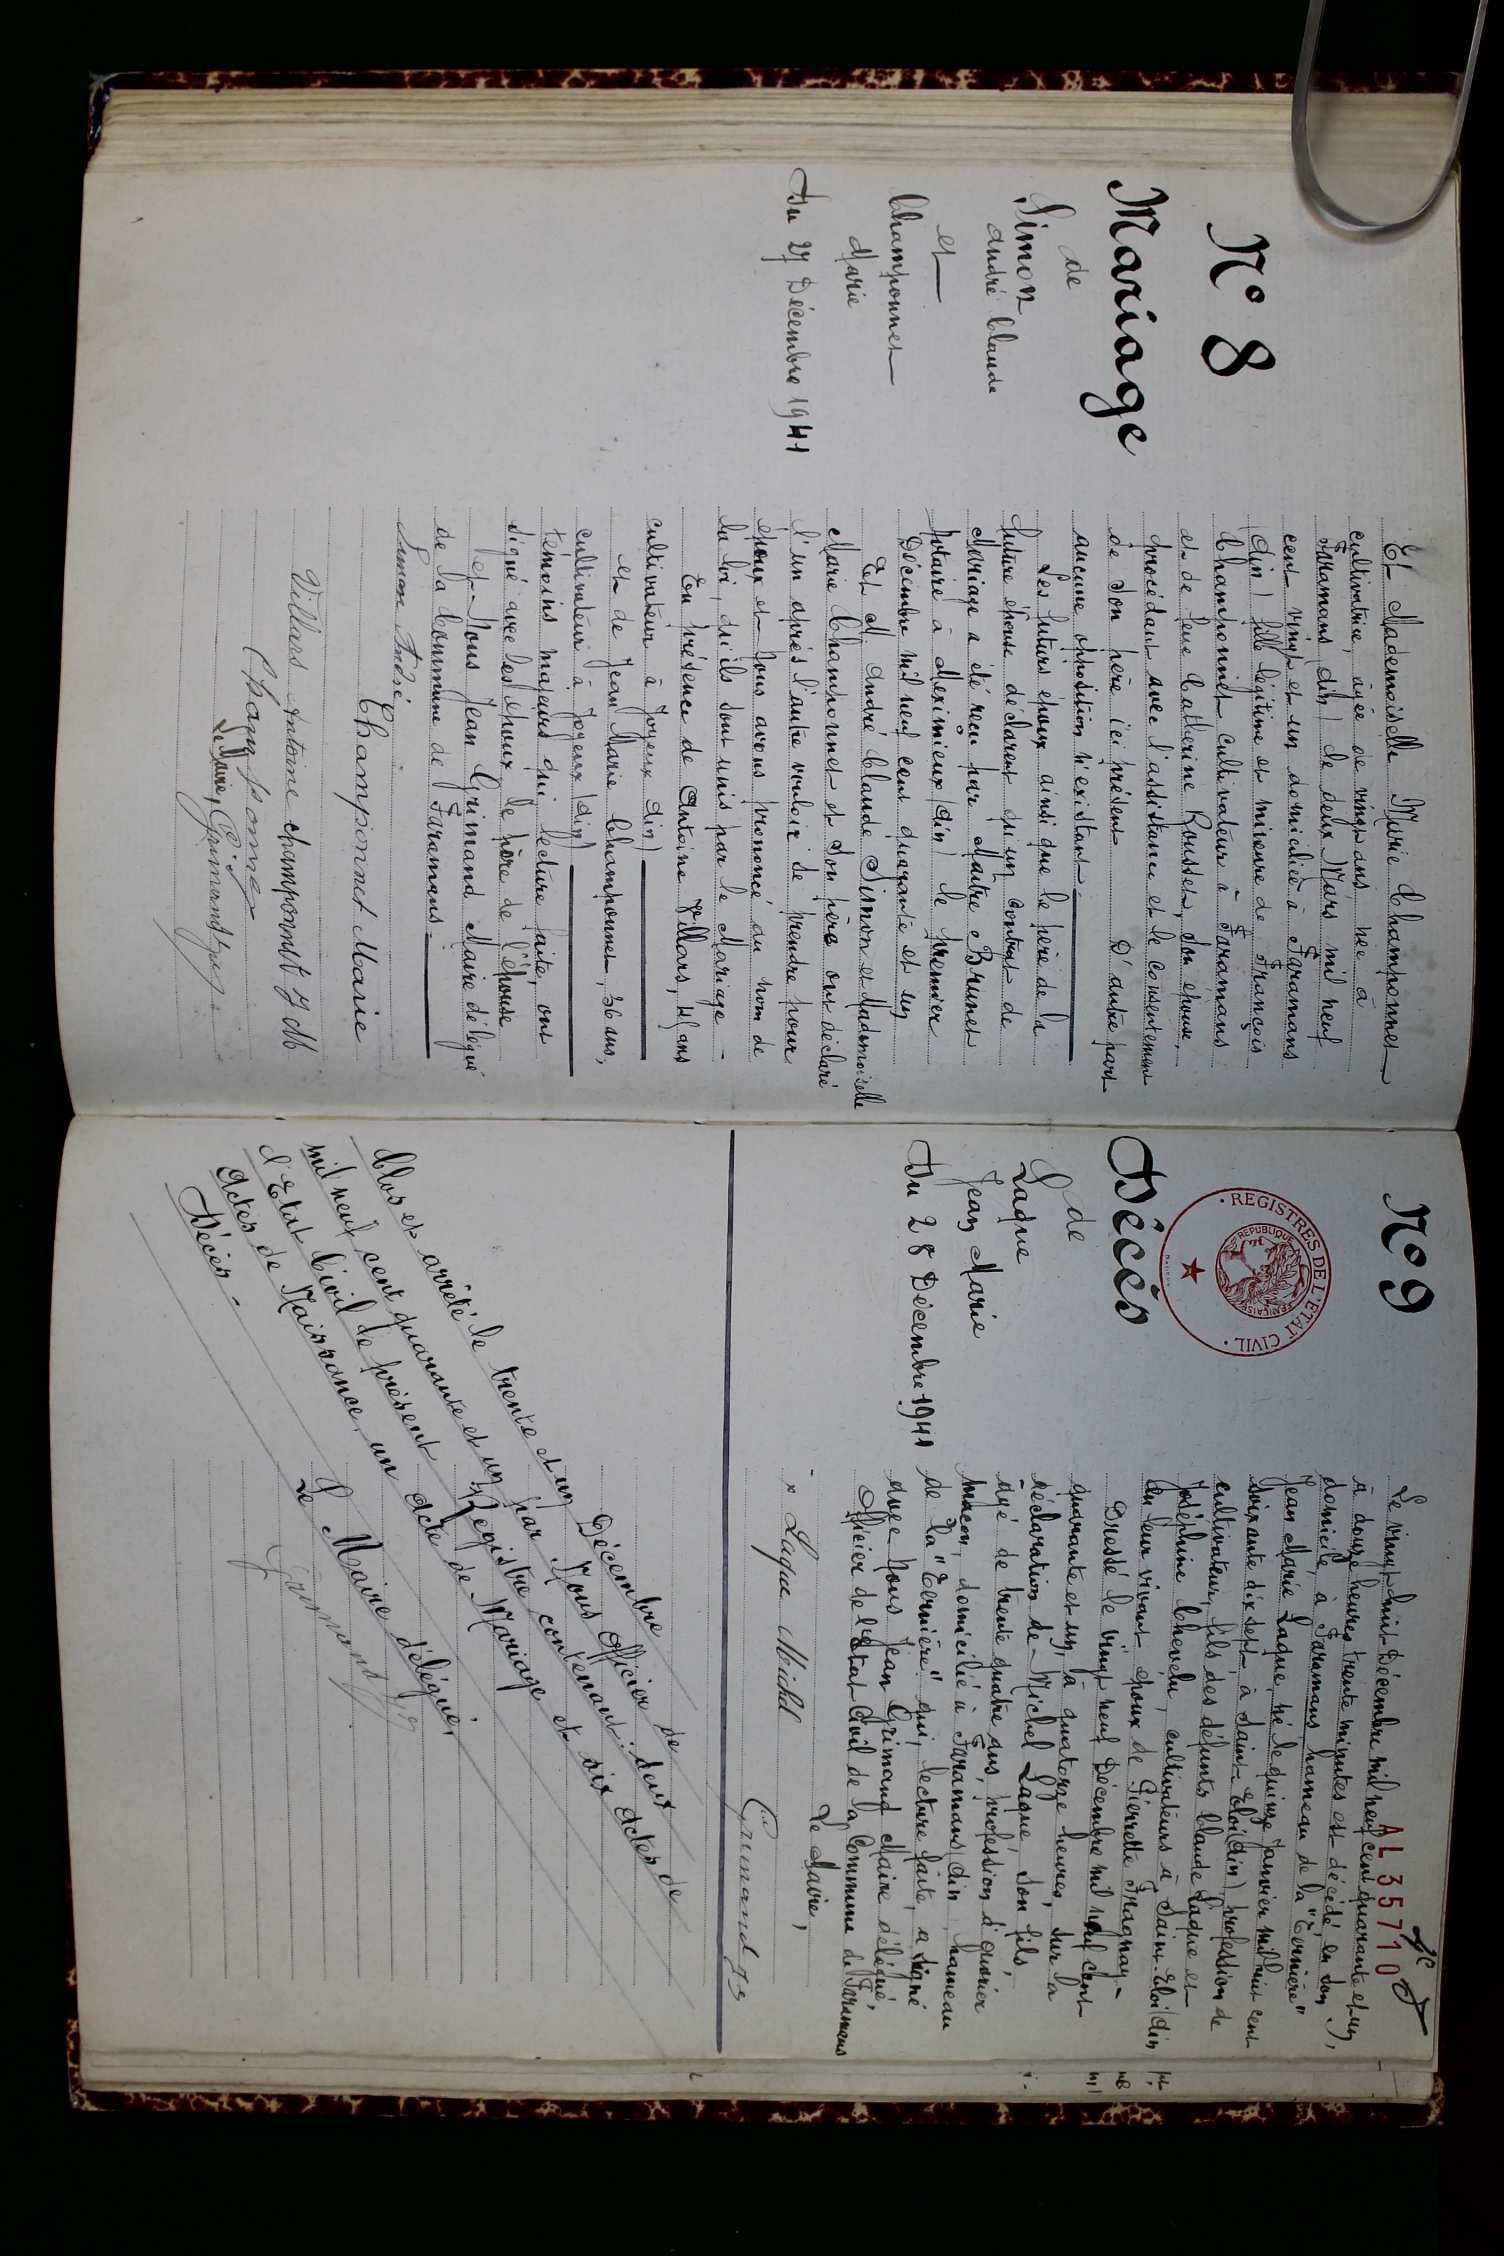 N° 8
Mariage
de
Simon
André Claude
et
Champonnet
Marie
Du 27 Décembre 1941
Et Mademoiselle Marie Champonnet
cultivatrice, âgée de vingt ans née à
Faramans (Ain) le deux Mars mil neuf
cent vingt et un domiciliée à Faramans
(Ain) fille légitime et mineure de François
Champonnet cultivateur à Faramans
et de feue Catherine Rousset, son épouse,
procédant avec l'assistance et le consentement
de son père ici présent D'autre part
aucune opposition n'existant
Les futurs époux ainsi que le père de la
future épouse déclarent qu'un contrat de
Mariage a été reçu par Maître Brunet
Notaire à Meximieux (Ain) le premier
Décembre mil neuf cent quarante et un
Et M. André Claude Simon et Mademoiselle
Marie Champonnet et son père ont déclaré
l'un après l'autre vouloir de prendre pour
époux et Nous avons prononcé au nom de
la loi, qu'ils sont unis par le Mariage -
En présence de Antoine Villars, ans
cultivateur à Joyeux Ain)
et de Jean Marie Champonnet, 36 ans,
cultivateur à Joyeux (Ain)
témoins majeurs qui, lecture faite, ont
signé avec les époux le père de l'épouse
et Nous Jean Grimand Maire délégué
de la Commune de Faramans.
Simon André
Champonnet Marie
Villars Antoine Champonnet J M
Champonnet
Le Maire, Grimand
N° 9
REGISTRES DE L'ETAT CIVIL
REPUBLIQUE FRANÇAISE
AL 35710
Décès
de
Laque
Jean Marie
Du 28 Décembre 1941
Le vingt huit Décembre mil neuf cent quarante et un
à douze heures trente minutes est décédé, en son
domicile, à Faramans hameau de la "Ternière",
Jean Marie Laque, né le quinze Janvier mil huit cent
soixante dix sept à Saint-Eloi (Ain) profession de
cultivateur, fils des défunts Claude Laque et
Joséphine Chevelu, cultivateurs à Saint-Eloi (Ain
en leur vivant époux de Pierrette Fragnay -
Dressé le vingt neuf Décembre mil neuf cent
quarante et un, à quatorze heures, sur la
déclaration de Michel Laque, son fils,
âgé de trente quatre ans, profession d'ouvrier
maçon, domicilié à Faramans (Ain, hameau
de la "Ternière" qui, lecture faite, a signé
avec Nous Jean Grimand Maire délégué,
Officier de l'Etat Civil de la Commune de Faramans
Le Maire,
Laque Michel
Grimand
Clos et arrêté le trente et un Décembre
mil neuf cent quarante et un par Nous Officier de
l'Etat Civil le présent Registre contenant: deux
Actes de Naissance, un Acte de Mariage et six Actes de
Décès -
Le Maire délégué,
Grimand